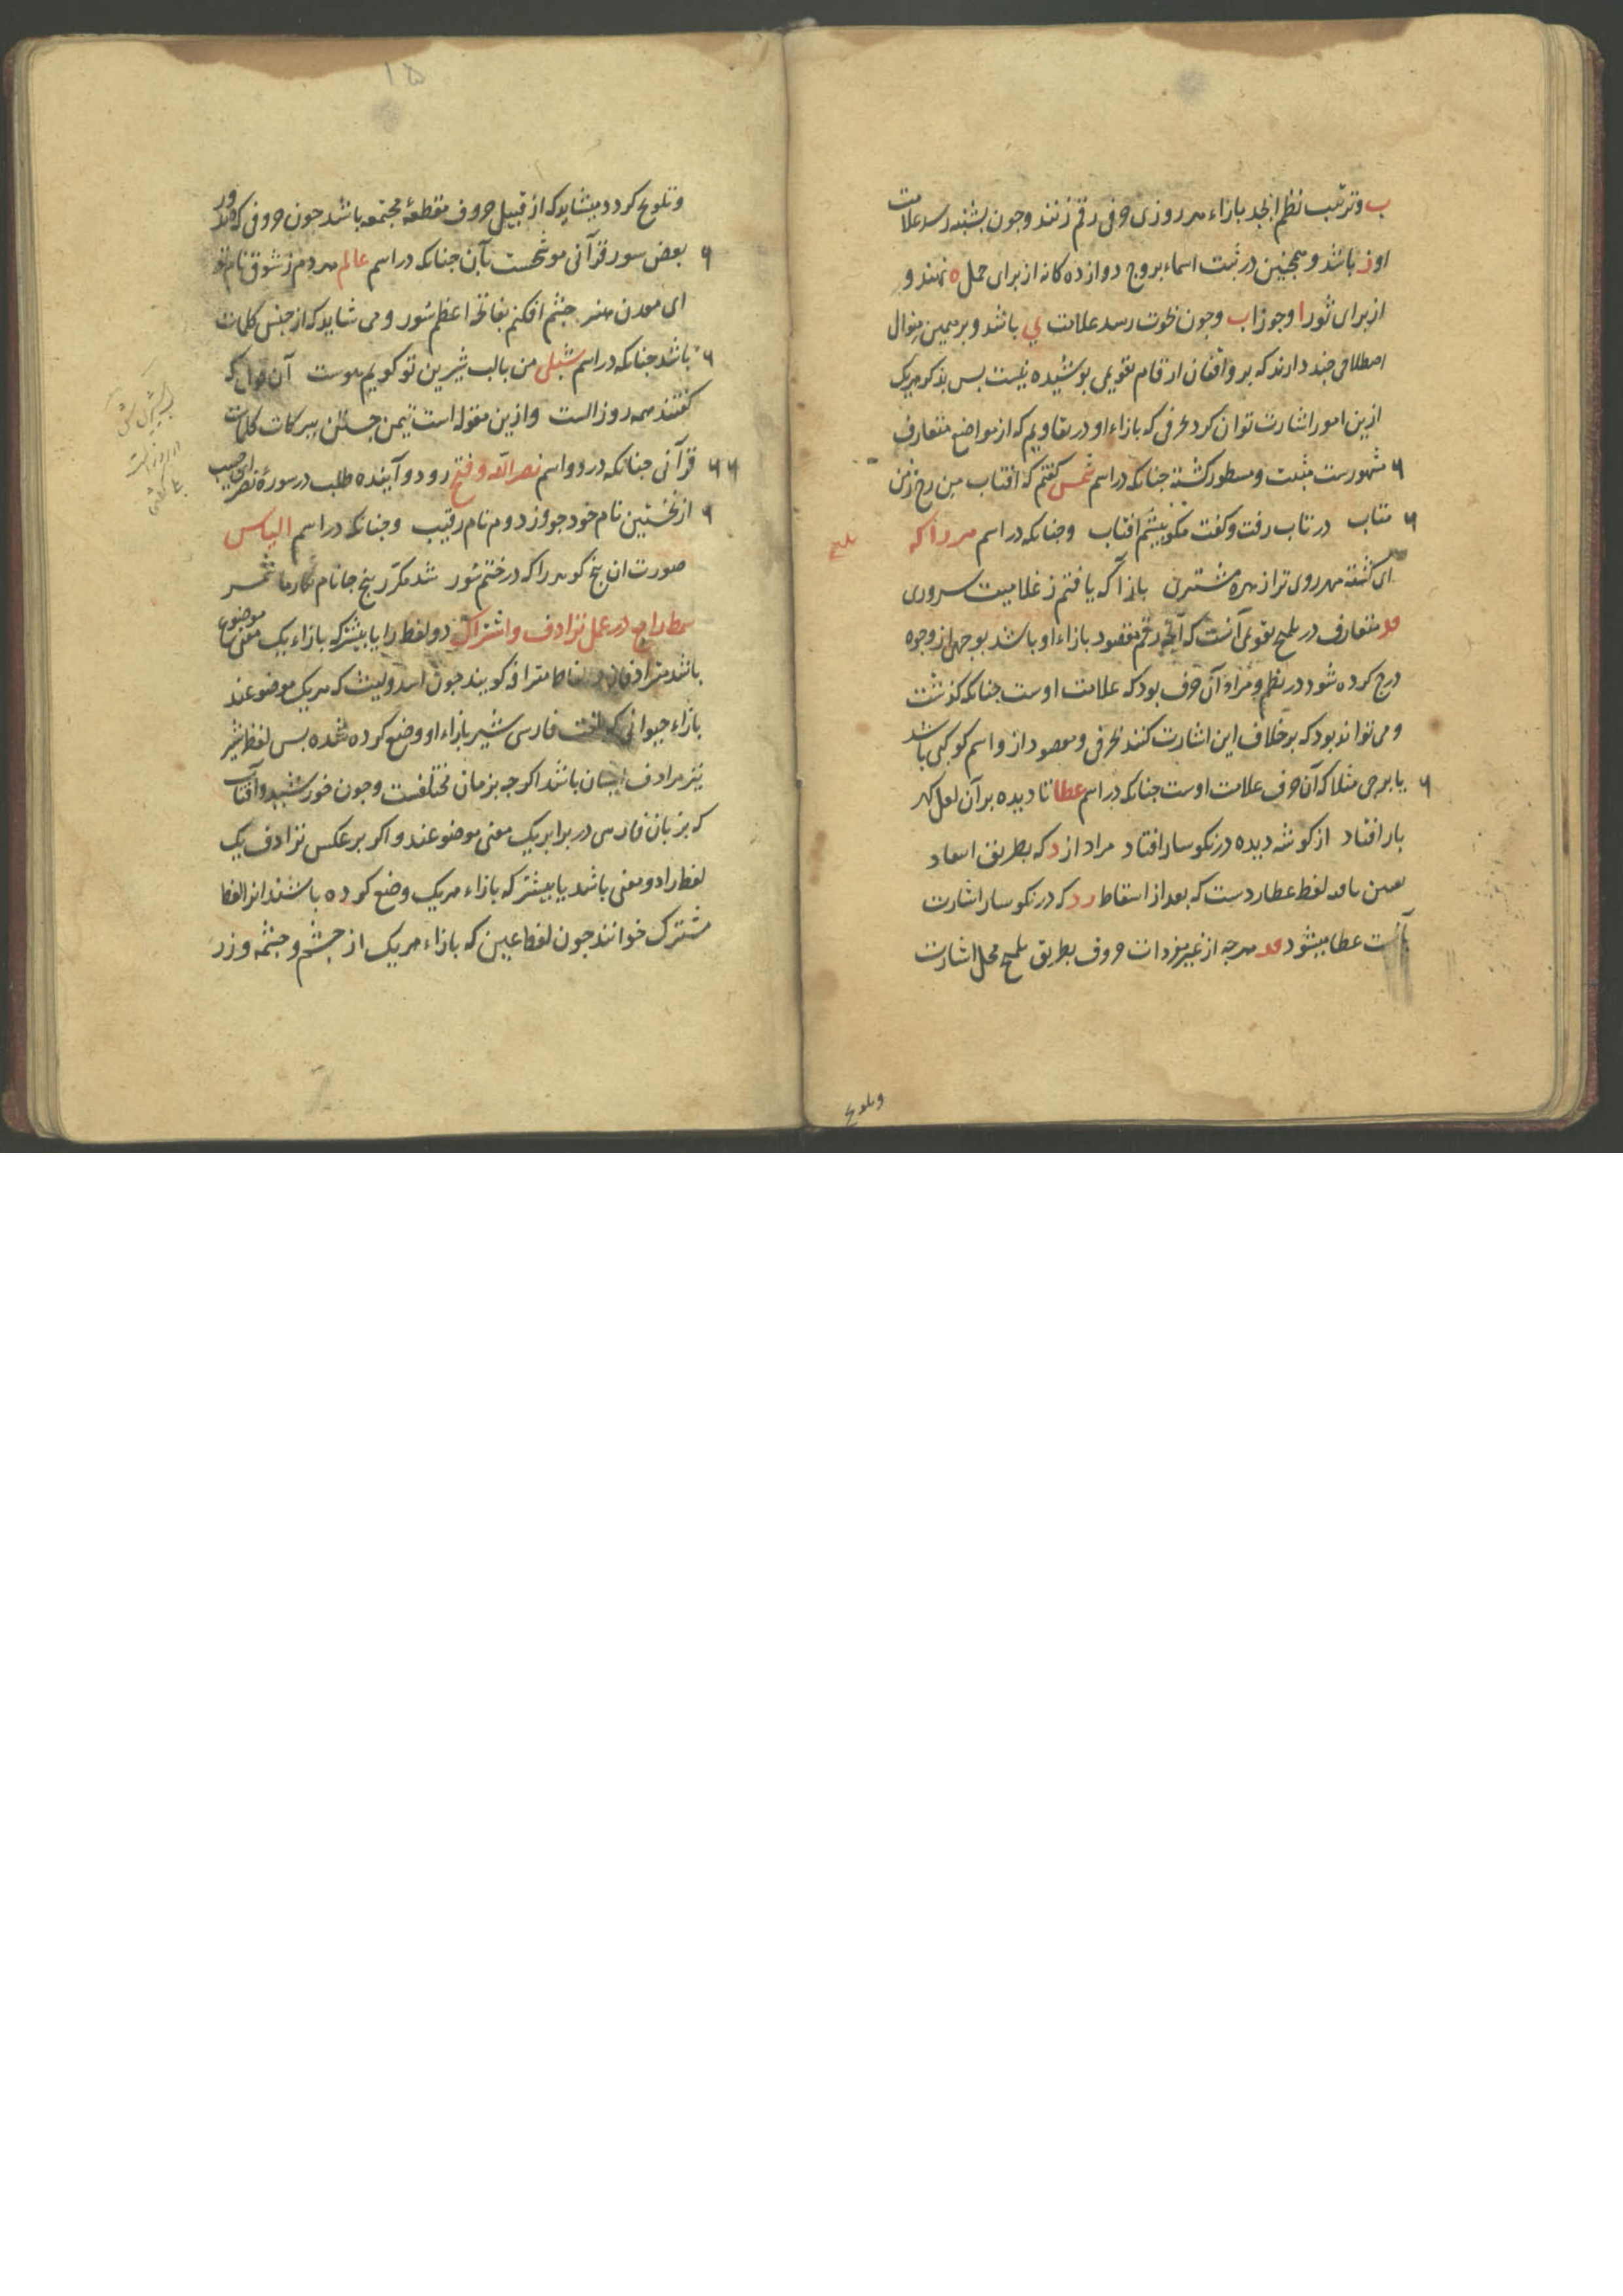 ب وترتیب نظم ابجد بازاء هر روزی حرفی رقم زنند وجون بشنبه رسد علامت
او ز باشد و همجنین در ثبت اسماء بروج دوازده کانه از برای حمل ه نهند و
از برای ثور ا وجوزا ب وجون بحوت رسد علامت ی باشد و بر همین منوال
اصطلاحی جند دارند که بر واقفان ارقام تقویمی پوشیده نیست بس بذکر هر یک
ازین امور اشارت توان کرد بحرفی که بازاء او در تقاویم که از مواضع متعارف
مشهورست مثبت و مسطور کشته جنانکه در اسم شمس کفتم که افتاب من رخ ز من
متاب در تاب رفت و کفت مکو بیشم افتاب وجنانکه در اسم
ای کشته مهر روی ترا زهره مشتری باز آ که یافتم ز غلامیت سروری
متعارف در تلمیح تقویمی آنست که آنچه رقم مقصود بازاء او باشد بوجهی از وجوه
درج کرده شود در نظم و مراد آن حرف بود که علامت اوست جنانکه کذشت
و می تواند بود که بر خلاف این اشارت کنند بحرفی و مقصود ازو اسم کوکبی باشد
یا برجی مثلا که آن حرف علامت اوست جنانکه در اسم عطا تا دیده بر آن لعل کهر
بار افتاد از کوشه دیده در نکوسار افتاد مراد از د که بطریق
لفظ عطاردست که بعد از اسقاط رد که در نکوسار اشارت
بآنست عطا میشود هرجه از غیر مفردات حروف بطریق تلمیح محل اشارت
وتلویح
تلمیح
۱۵
وتلویح کردد میشاید که از قبیل حروف مقطعهٔ مجتمعه باشد جون حروفی که در
بعض سور قرآنی موشحست بآن جنانکه در اسم عالم هر دم ز شوق نام تو
ای معدن هنر جشم افکنم بفاتحهٔ اعظم سور و می شاید که از جنس کلمات
باشد جنانکه در اسم شبلی من بالب شیرین تو کویم هوست آن قول که
کفتند همه روز الست و ازین مقوله است تیمن جستن ببرکات کلمات
قرآنی جنانکه در دو اسم نصر الله و فتح رو دو آینده طلب در سورهٔ نصر
از نخستین نام خود جو وز دوم نام رقیب وجنانکه در اسم الیاس
صورت ان بنج کوهر را که در ختم سور شد مکرر بنج جا نام نکار ما شمر
در عمل ترادف و اشتراک دو لفظ را یا بیشتر که بازاء یک معنی موضوع
باشد مترادفان و الفاظ مترادفه کویند جون اسد و لیث که هر یک موضوعند
بازاء حیوانی که لغت فارسی شیر بازاء او وضع کرده شده بس لفظ شیر
نیز مرادف ایشان باشد اکرجه بزمان مختلفست وجون خورشید و آفتاب
که بزبان فارسی در برابر یک معنی موضوعند و اکر بر عکس ترادف یک
لفظ را دو معنی باشد یا بیشتر که بازاء هر یک وضع کرده باشند انرا لفظ
مشترک خوانند جون لفظ عین که بازاء هر یک از جشم و جشمه و زر